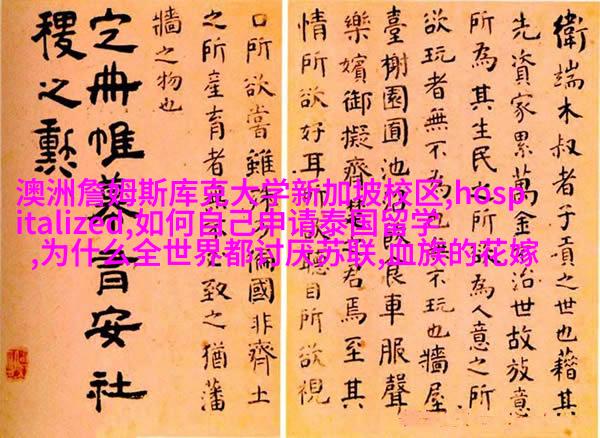 衛端木叔者子貢之世也藉其
先資家累萬金不治世故放意
所為其生民之所欲為人意之所
欲玩者無不為也無不玩也牆屋
臺榭園囿池沼飲食車服聲
樂嬪御擬齊楚之君焉至其
情所欲好耳所欲聽目所欲視
口所欲嘗雖殊方偏國非齊土
之所產育者無不必致之猶藩
牆之物也
定冊帷幕有安社
稷之勳
澳洲詹姆斯库克大学新加坡校区,hosp
italized,如何自己申请泰国留学
,为什么全世界都讨厌苏联,血族的花嫁